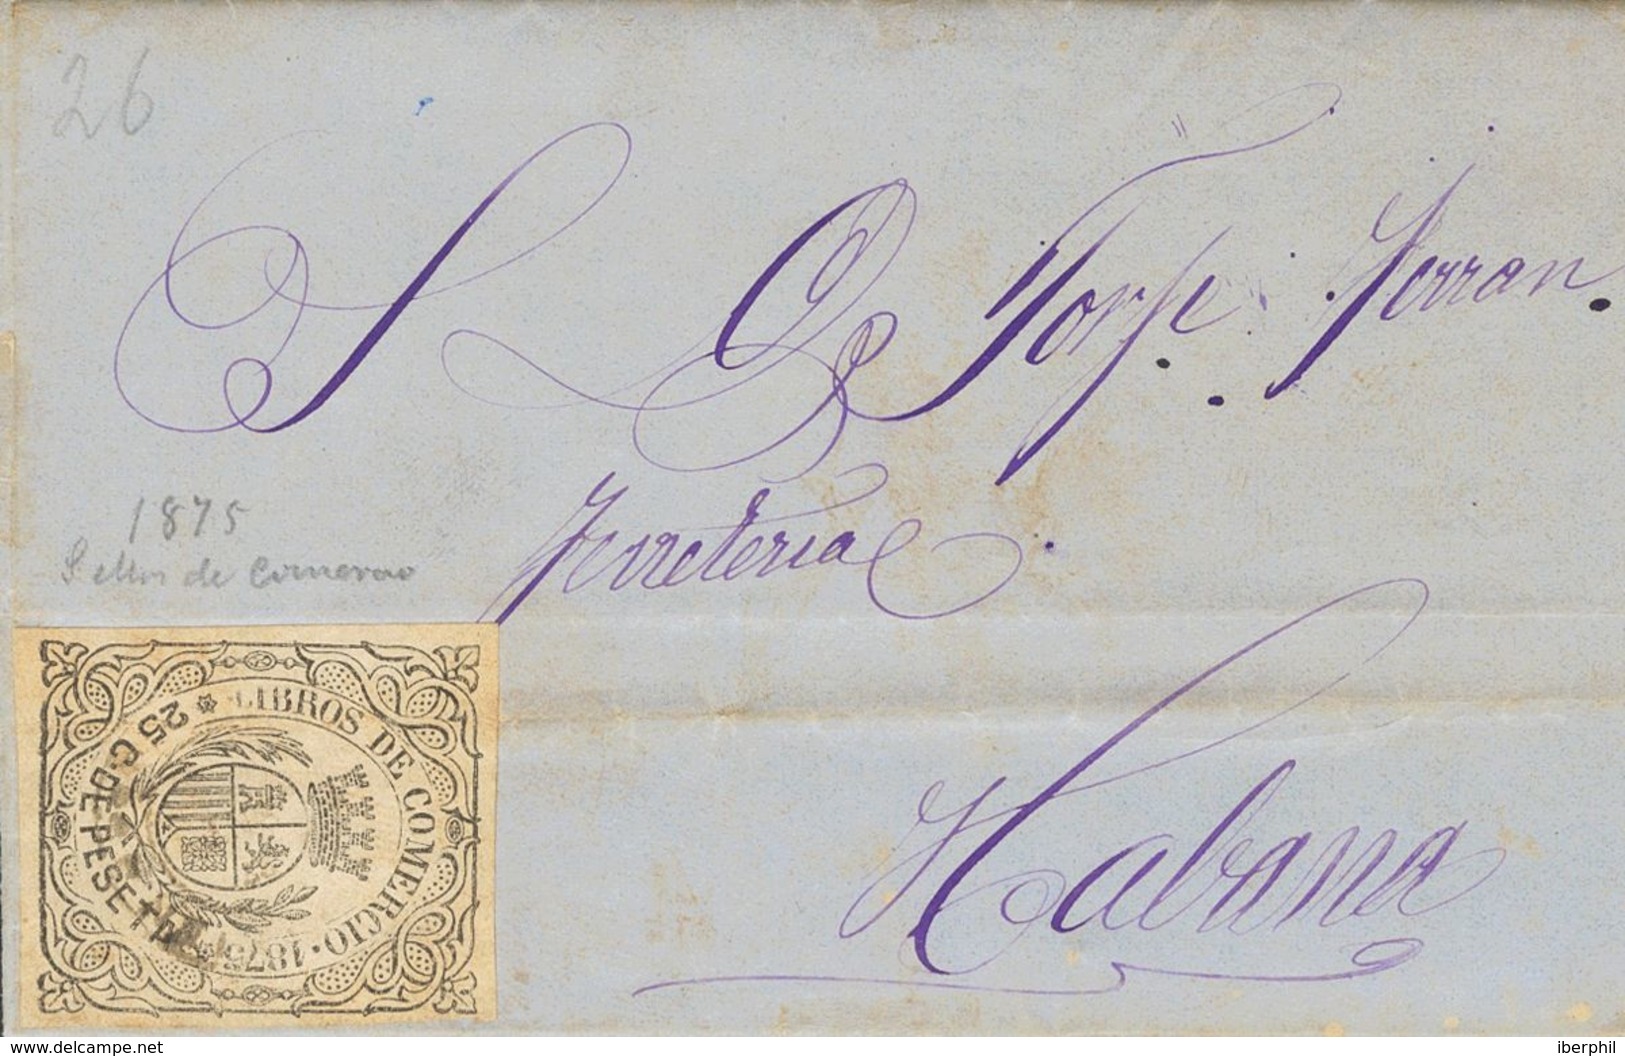 26
S D Jorje Ferran.
Ferreteria
Habana
1875
Sellos de Comercio
LIBROS DE COMERCIO · 1875
25 C. DE PESETA
www.delcampe.net
iberphil